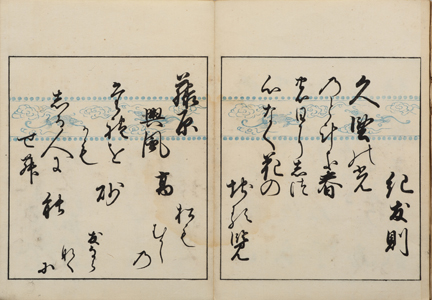 紀友則
久堅の光
のとけき春
の日にしつ
心なく花の
地る覧
藤原
興風
たれを
かも
しる人に
せむ
高
砂
の
松も
むかし
の
友なら
なく
に